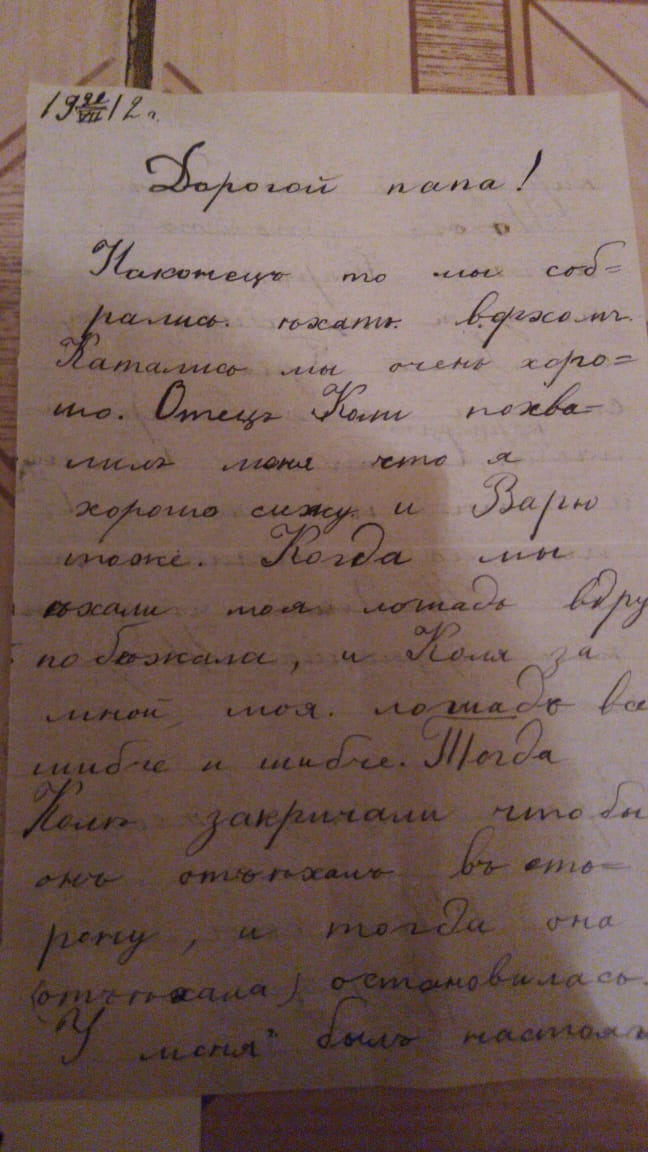 19 22/VII 12 г.
Дорогой папа!
Наконецъ то мы соб=
рались ѣхать верхомъ.
Катались мы очень хоро=
шо. Отецъ Коли похва=
лилъ меня что я
хорошо сижу и Варю
тоже. Когда мы
ѣхали моя лошадь вдру
побѣжала, и Коля за
мной моя лошадь все
шибче и шибче. Тогда
Колѣ закричали что бы
онъ отъѣхалъ въ сто=
рону, и тогда она
(отъѣхала) остановилась.
У меня былъ настоя